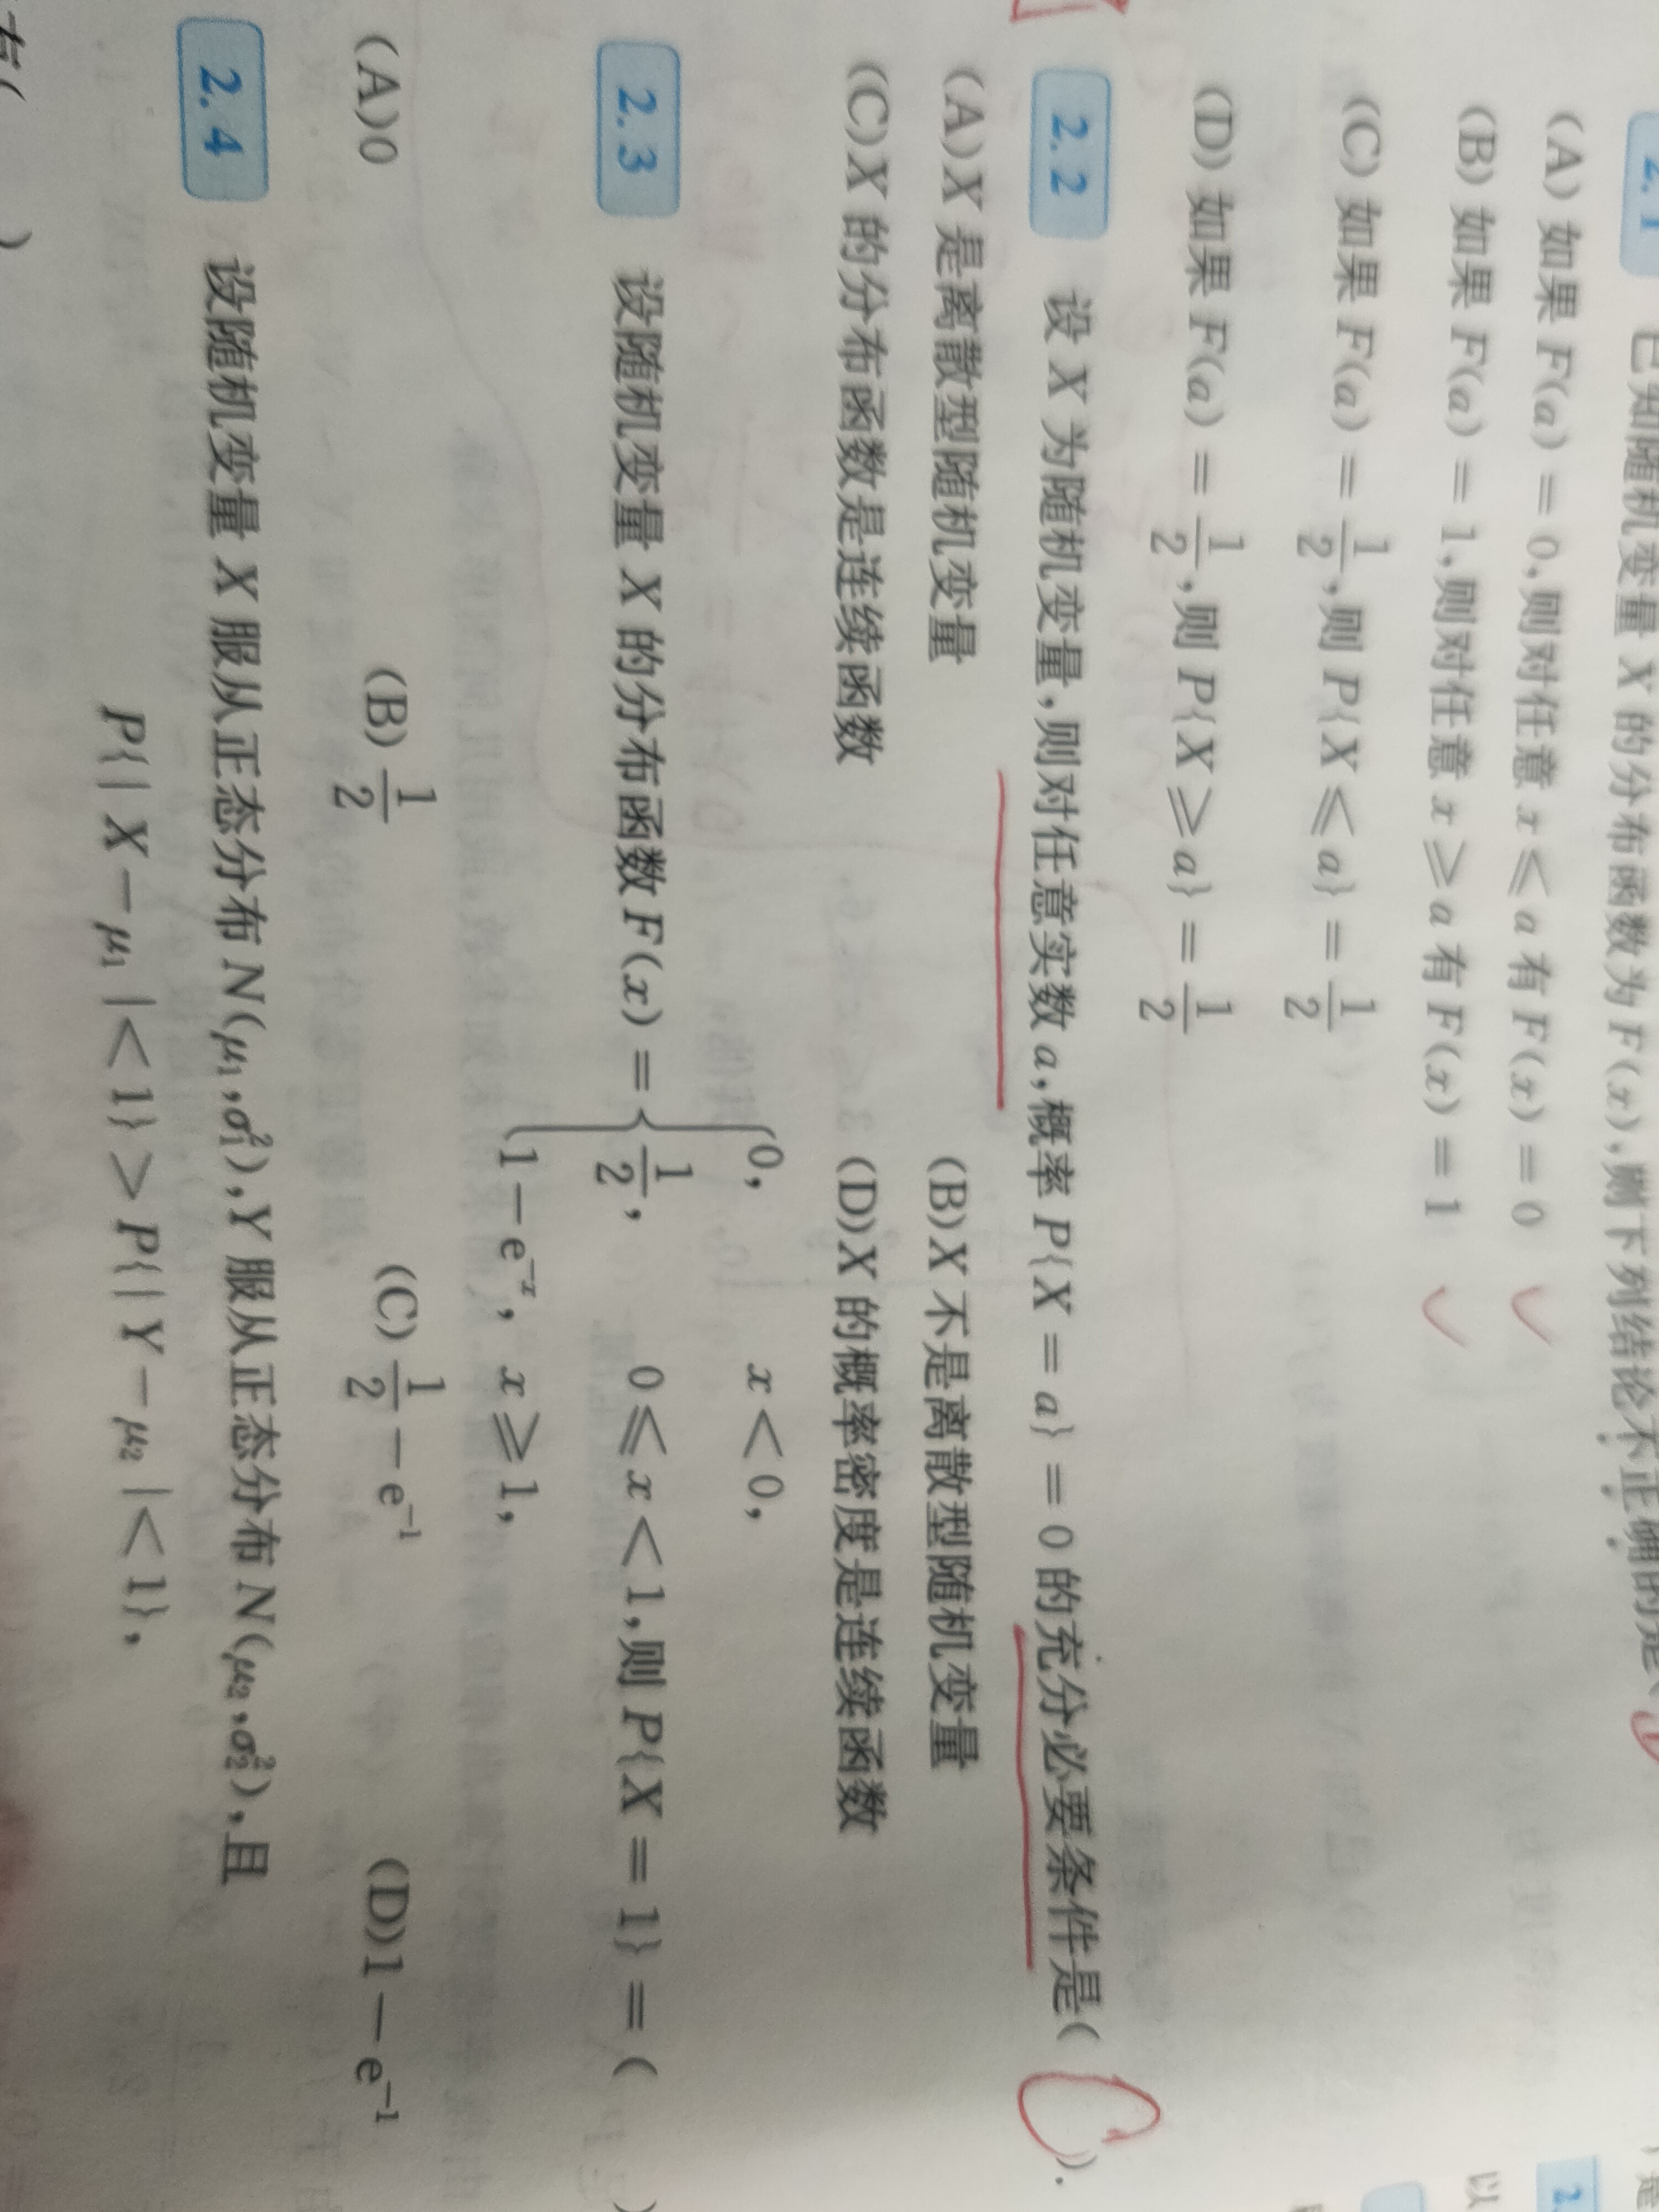 2.1 已知随机变量 X 的分布函数为 F(x),则下列结论不正确的是(
(A) 如果 F(a) = 0,则对任意 x ⩽ a 有 F(x) = 0
(B) 如果 F(a) = 1,则对任意 x ⩾ a 有 F(x) = 1
(C) 如果 F(a) = 1/2,则 P{X ⩽ a} = 1/2
(D) 如果 F(a) = 1/2,则 P{X ⩾ a} = 1/2
2.2 设 X 为随机变量,则对任意实数 a,概率 P{X = a} = 0 的充分必要条件是( C ).
(A)X 是离散型随机变量 (B)X 不是离散型随机变量
(C)X 的分布函数是连续函数 (D)X 的概率密度是连续函数
2.3 设随机变量 X 的分布函数 F(x) = { 0, x < 0,
1/2, 0 ⩽ x < 1,则 P{X = 1} = ( )
1 − e⁻ˣ, x ⩾ 1,
(A)0 (B) 1/2 (C) 1/2 − e⁻¹ (D)1 − e⁻¹
2.4 设随机变量 X 服从正态分布 N(μ₁,σ₁²),Y 服从正态分布 N(μ₂,σ₂²),且
P{| X − μ₁ |< 1} > P{| Y − μ₂ |< 1},